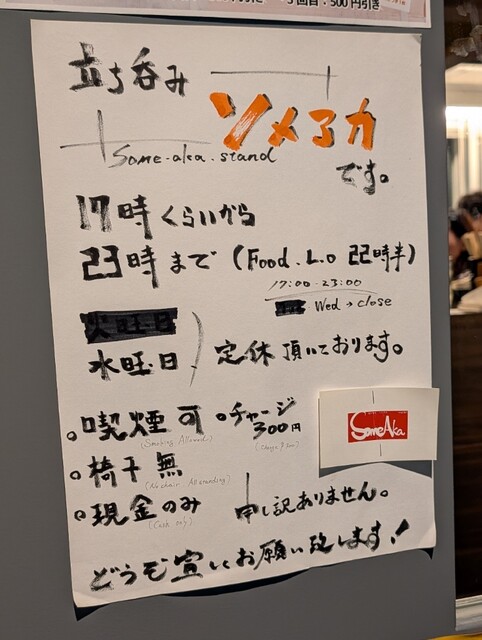 3回目:500円引き
立ち呑み
ソメアカ
Some-aka.stand
です。
17時くらいから
23時まで (Food.L.o 22時半)
17:00-23:00
Wed→close
火曜日
水曜日 定休頂いております。
。喫煙可 。チャージ300円
(Smoking Allowed)
SomeAka
。椅子無
(No chair. All standing)
。現金のみ 申し訳ありません。
(Cash only)
どうぞ宜しくお願い致します!